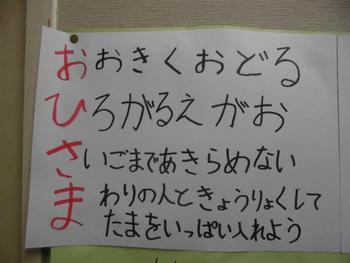 おおきくおどる
ひろがるえがお
さいごまであきらめない
まわりの人ときょうりょくして
たまをいっぱい入れよう